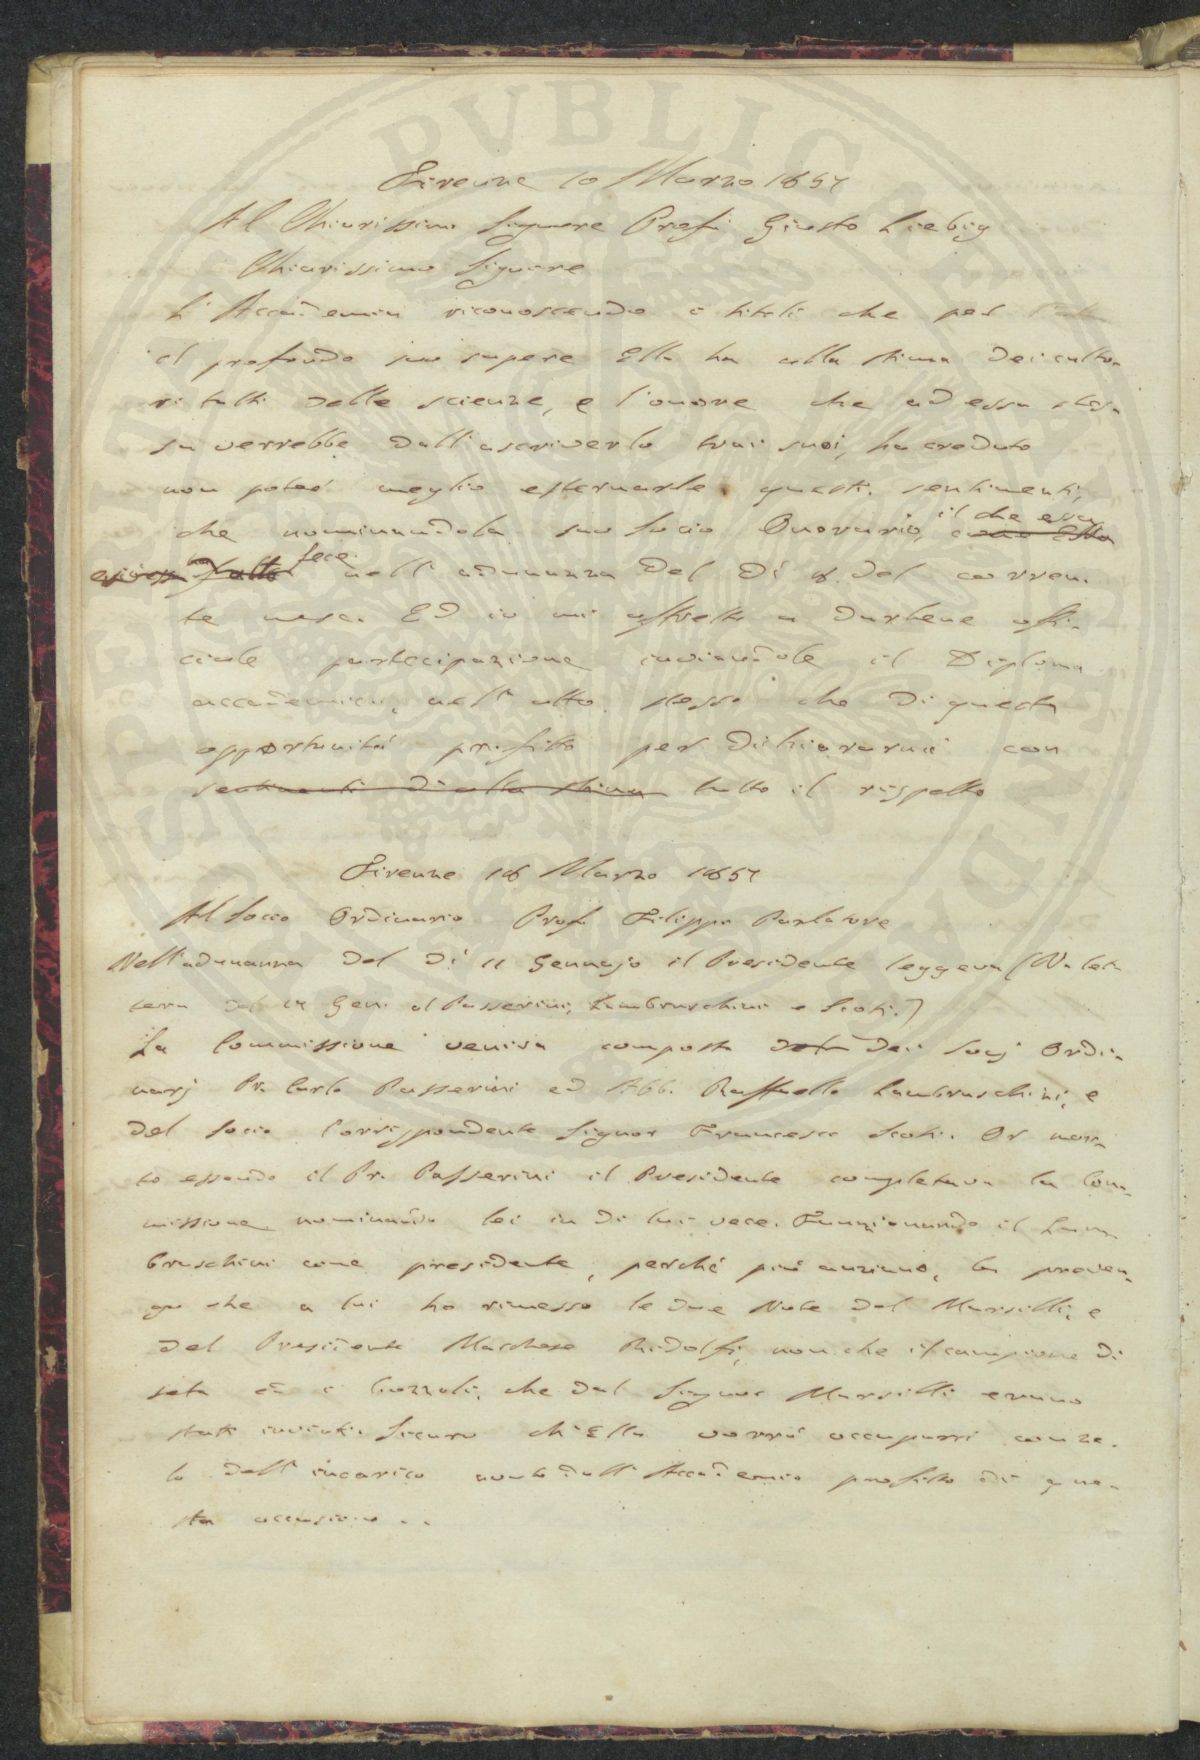 Firenze 10 Marzo 1857
Al Chiarissimo Signore Prof. Giusto Liebig
Chiarissimo Signore
L'Accademia riconoscendo i titoli che per
il profondo suo sapere Ella ha alla stima dei culto-
ri tutti delle scienze, e l'onore che ad essa stes-
sa verrebbe dall'ascriverlo trai suoi, ha creduto
non poter meglio esternarle questi sentimenti,
che nominandola suo Socio Onorario, il che essa come essa
fatto fece nell'adunanza del dì 8 del corren-
te mese. Ed io mi affretto a darlene uffi-
ciale partecipazione inviandole il Diploma
accademico, nell'atto stesso che di questa
opportunità profitto per dichiararmi con
sentimenti di alta stima tutto il rispetto
Firenze 18 Marzo 1857
Al Socio Ordinario Prof. Filippo Parlatore
Nell'adunanza del dì 11 Gennajo il Presidente leggeva (Va let-
tera del 14 Gen. al Passerini, Lambruschini e Scoti.)
La Commissione veniva composta dei Socj Ordi-
narj Pr. Carlo Passerini ed Abb. Raffaello Lambruschini, e
del Socio Corrispondente Signor Francesco Scoti. Or mor-
to essendo il Pr. Passerini il Presidente completava la Com-
missione nominando lei in di lui vece. Funzionando il Lam-
bruschini come presidente, perché più anziano, la preven-
go che a lui ho rimesso le due Note del Marsilli, e
del Presidente Marchese Ridolfi, non che il campione di
seta ed i bozzoli, che dal Signor Marsilli erano
stati inviati. Sicuro ch'Ella vorrà occuparsi con ze-
lo dell'incarico avuto dall'Accademia profitto di que-
sta occasione . .
PVBLICAE